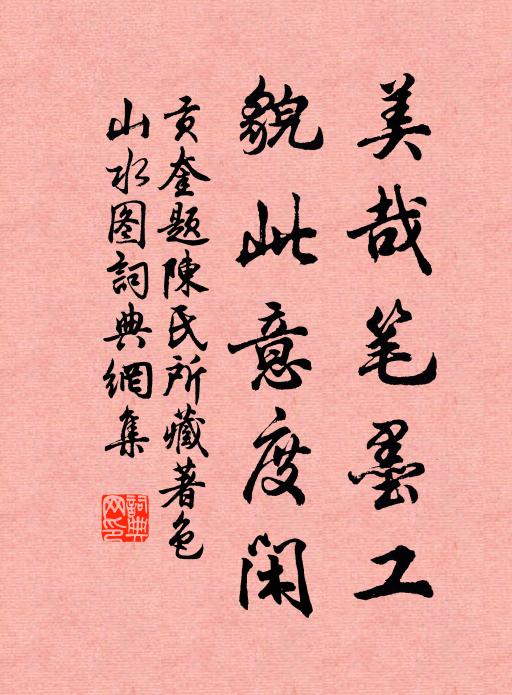 美哉笔墨工
貌此意度闲
贡奎题陳氏所藏著色
山水图詞典網集
詞典网印